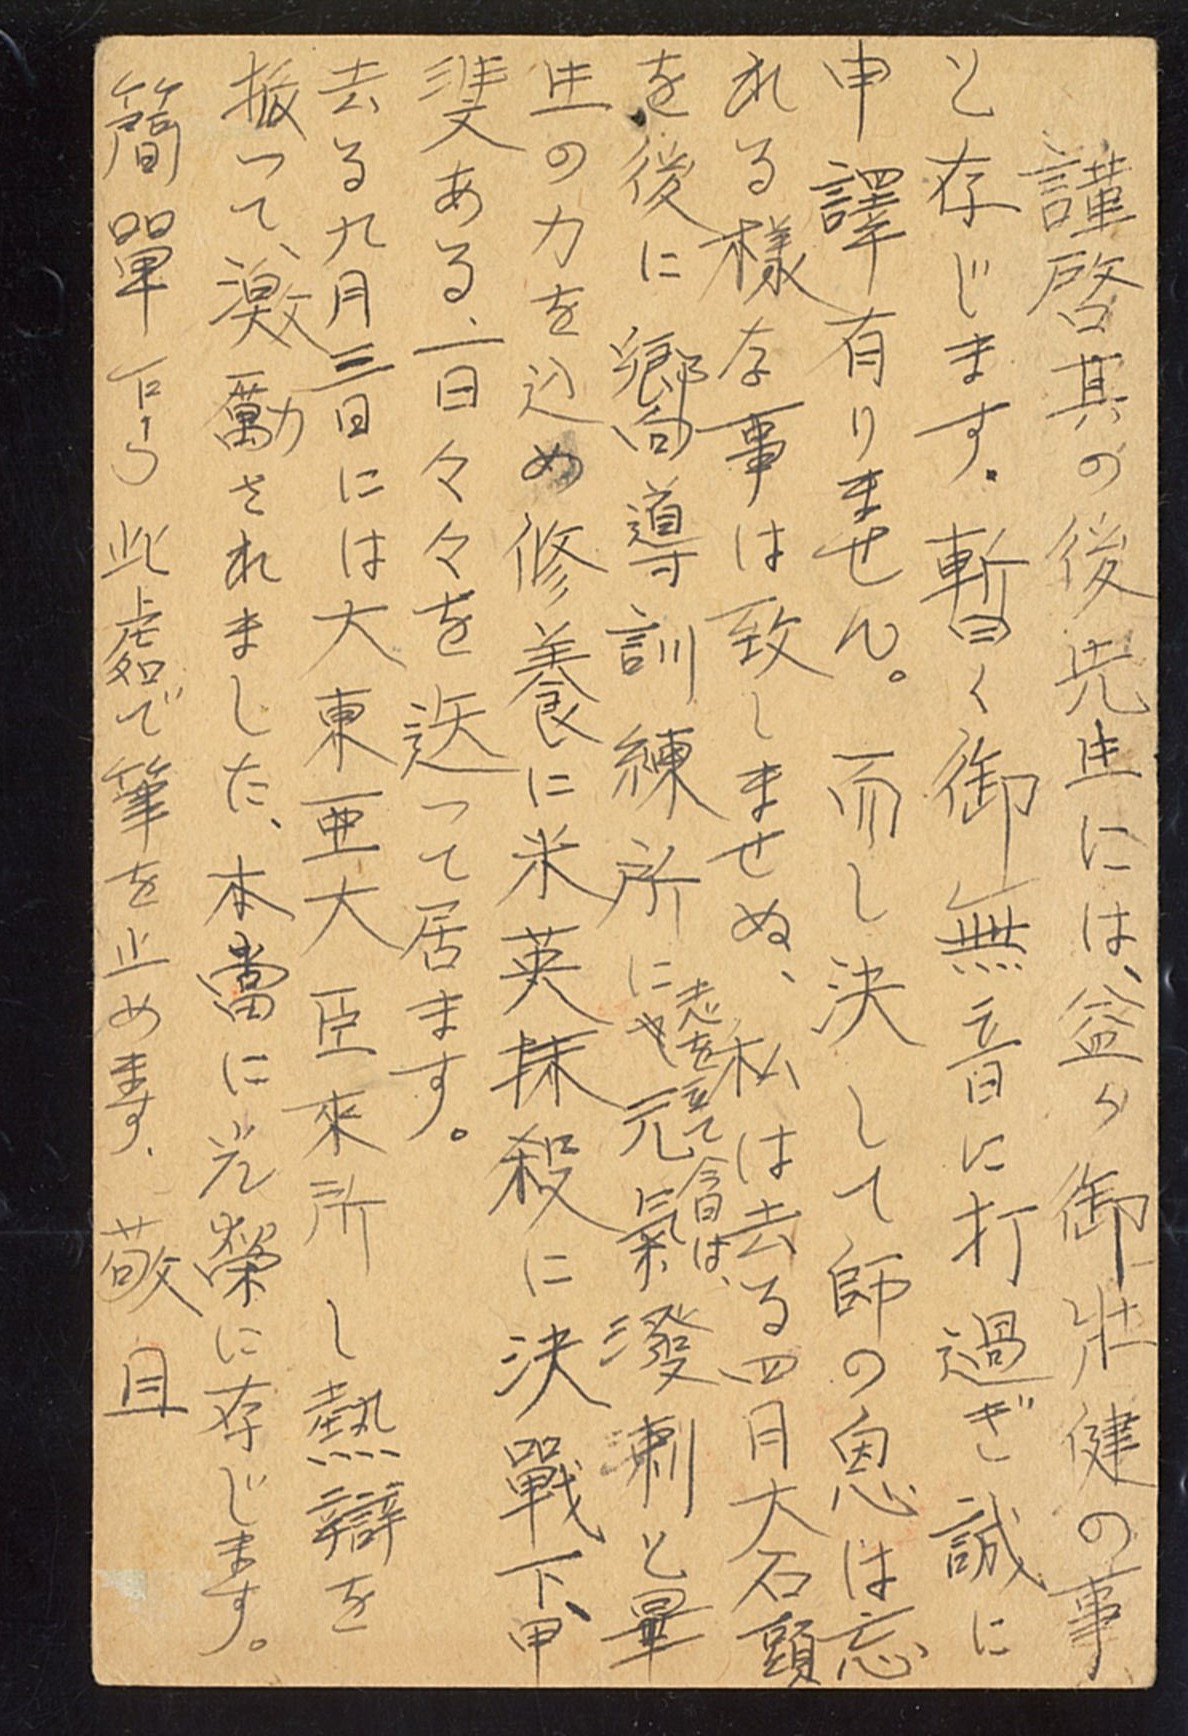 謹啓其の後先生には、益々御壮健の事
と存じます。暫く御無音に打過ぎ誠に
申譯有りません。而し決して師の恩は忘
れる様な事は致しませぬ、私は去る四月大石頭
を後に嚮導訓練所に志を立て今日は、元氣潑剌と畢
生の力を込め修養に米英抹殺に決戰下、甲
斐ある、一日々々を送って居ます。
去る九月三日には大東亜大臣來所し熱辯を
振って、激勵されました、本當に光榮に存じます。
簡單乍ら此處で筆を止めます、敬具